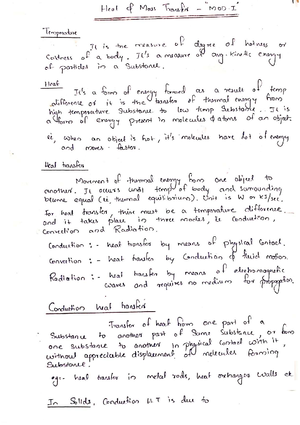 Heat & Mass Transfer - "MOD-I"
Temperature
It is the measure of degree of hotness or
Coldness of a body. It's a measure of avg. kinetic energy
of particles in a Substance.
Heat
It's a form of energy formed as a result of temp
difference or it is the transfer of thermal energy from
high temperature Substance to low temp Substance. It is
a form of energy present in molecules & atoms of an object
ie, when an object is hot, it's molecules have lot of energy
and moves faster.
Heat transfer
Movement of thermal energy from one object to
another. It occurs until temp of body and surrounding
become equal (ie, thermal equilibrium). Unit is W or KJ/sec.
For heat transfer, there must be a temperature difference
and it takes place in three modes, ie Conduction,
Convection and Radiation.
Conduction :- heat transfer by means of physical Contact.
Convection :- heat transfer by Conduction & fluid motion.
Radiation :- heat transfer by means of electromagnetic
waves and requires no medium for propagation.
Conduction heat transfer
Transfer of heat from one part of a
Substance to another part of Same Substance, or from
one substance to another in physical Contact with it,
without appreciable displacement of molecules forming
Substance.
eg:- heat transfer in metal rods, heat exchangers walls etc
In Solids, Conduction H.T is due to